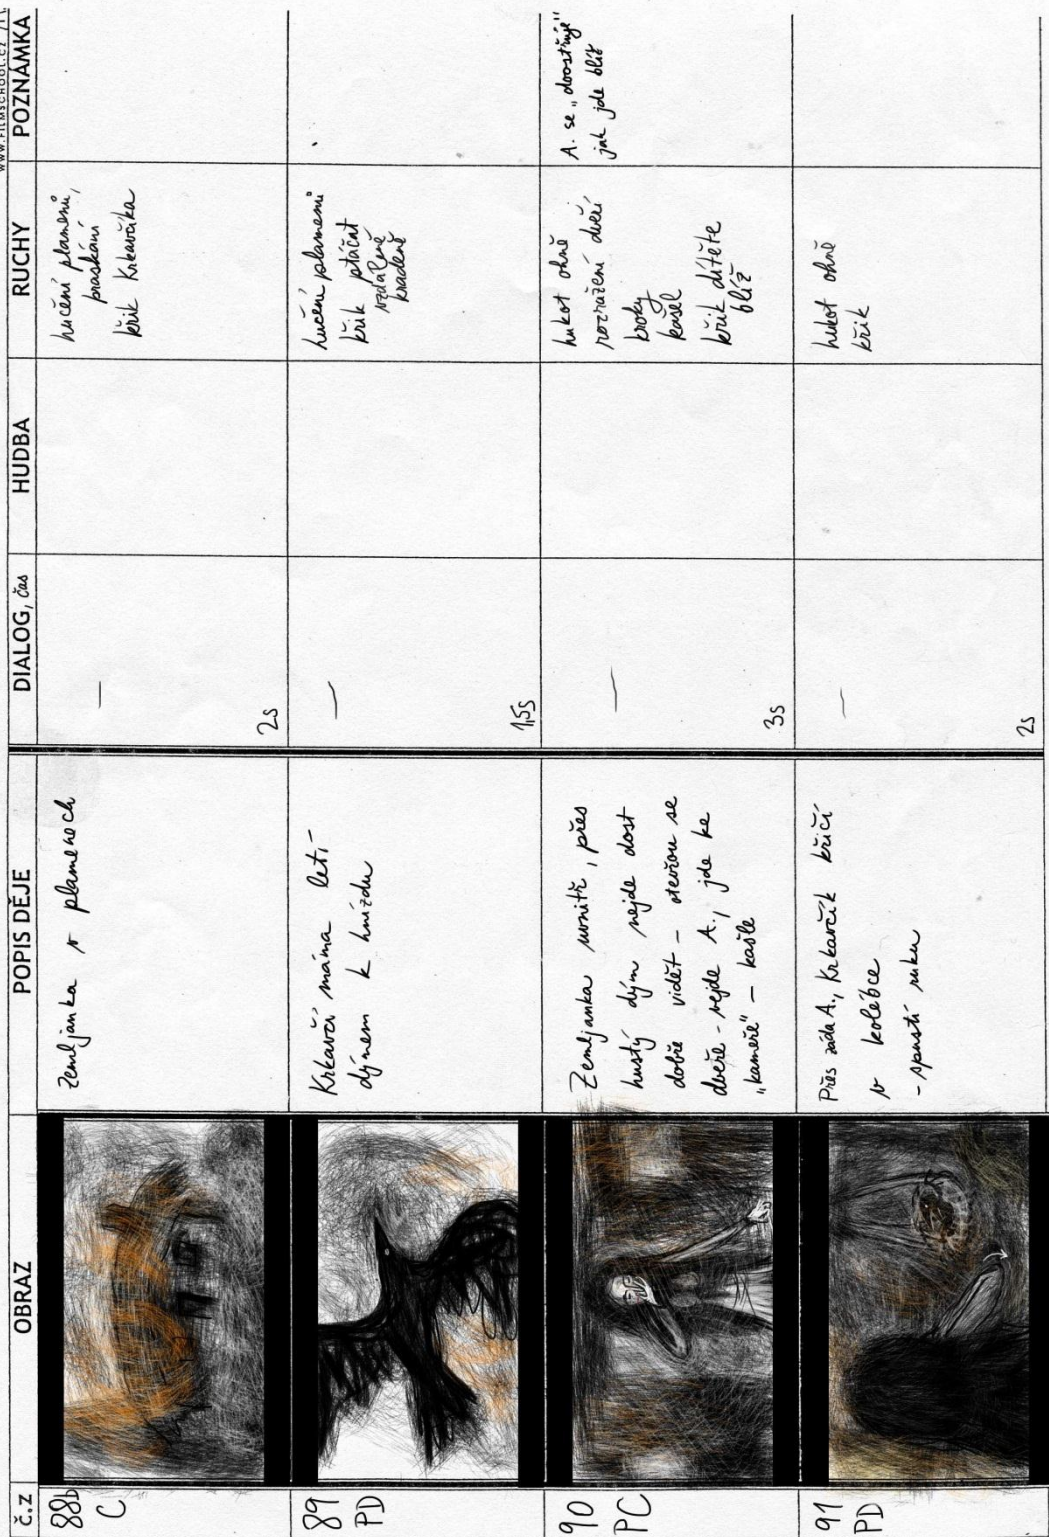 č.z OBRAZ POPIS DĚJE DIALOG, čas HUDBA RUCHY POZNÁMKA
88b
C
Zemljanka v plamenech
—
2s
hučení plamenů,
praskání
křik Krkavčíka
89
PD
Krkavčí máma letí –
dýmem k hnízdu
—
1,5s
hučení plamenů
křik ptáčat
vzdáleně
kradeně
90
PC
Zemljanka uvnitř, přes
hustý dým nejde dost
dobře vidět – otevřou se
dveře – vejde A., jde ke
„kameře" – kašle
—
3s
hukot ohně
rozražení dveří
kroky
kašel
křik dítěte
blíž
A. se „doostřuje"
jak jde blíž
91
PD
Přes záda A., Krkavčík křičí
v kolébce
- spustí ruku
—
2s
hukot ohně
křik